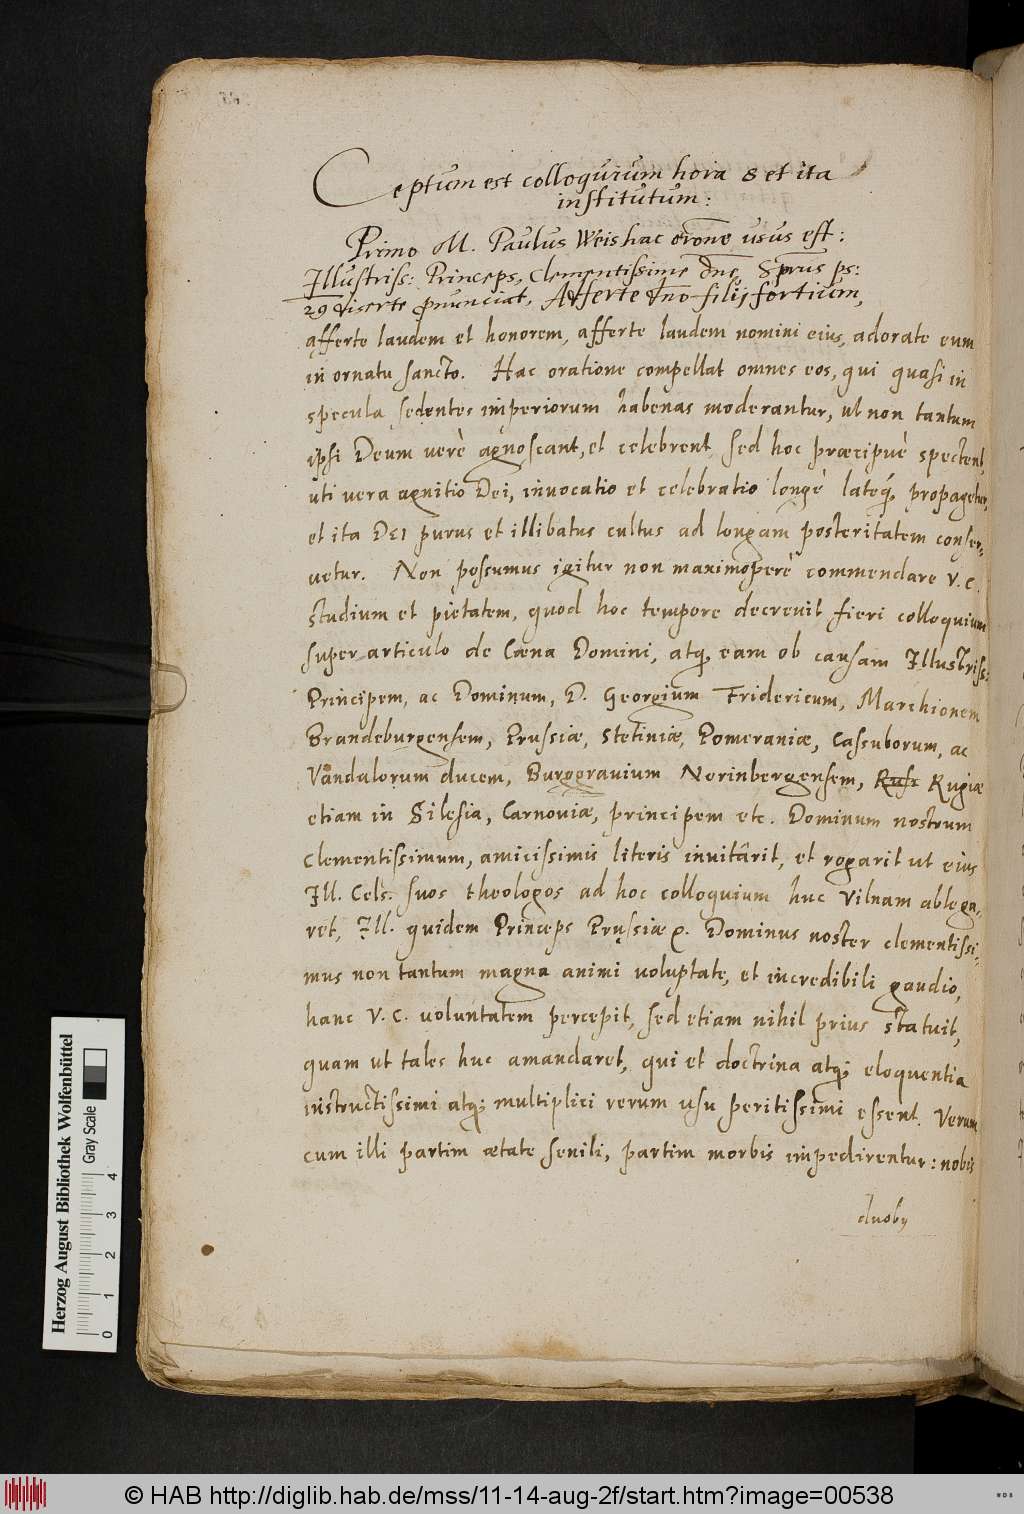 Ceptum est colloquium hora 8 et ita
institutum:
Primo M. Paulus Weis hac oröne usus est:
Illustriss: Princeps, Clementissime dne, Sprus ps:
29 diserte pnunciat, Afferte dno filij fortium,
afferte laudem et honorem, afferte laudem nomini eius, adorate eum
in ornatu sancto. Hac oratione compellat omnes eos, qui quasi in
specula sedentes imperiorum habenas moderantur, ut non tantum
ipsi Deum verè agnoscant, et celebrent, sed hoc præcipuè spectent,
uti vera agnitio Dei, invocatio et celebratio longè lateq; propagetur,
et ita DEI purus et illibatus cultus ad longam posteritatem conser-
vetur. Non possumus igitur non maximoperè commendare V. C.
studium et pietatem, quod hoc tempore decrevit fieri colloquium
super articulo de Cœna Domini, atq; eam ob causam Illustriss:
Principem, ac Dominum, D. Georgium Fridericum, Marchionem
Brandeburgensem, Prussiæ, Stetiniæ, Pomeraniæ, Cassuborum, ac
Vandalorum ducem, Burggravium Norinbergensem, Rusi Rugiæ
etiam in Silesia, Carnoviæ, principem etc. Dominum nostrum
Clementissimum, amicissimis literis invitârit, et rogarit ut eius
Ill. Cels. suos theologos ad hoc colloquium huc Vilnam ablega-
ret, Ill. quidem Princeps Prussiæ &. Dominus noster clementissi-
mus non tantum magna animi voluptate, et incredibili gaudio,
hanc V. C. voluntatem percepit, sed etiam nihil prius statuit,
quam ut tales huc amandaret, qui et doctrina atq; eloquentia
instructissimi atq; multiplici rerum usu peritissimi essent. Verum
cum illi partim ætate senili, partim morbis impedirentur: nobis
duoby
Herzog August Bibliothek Wolfenbüttel
Gray Scale
0 1 2 3 4
© HAB http://diglib.hab.de/mss/11-14-aug-2f/start.htm?image=00538